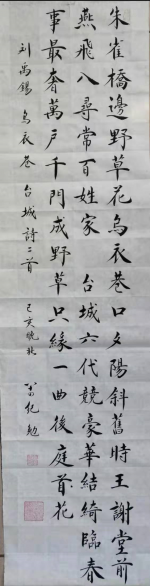 朱雀橋邊野草花烏衣巷口夕陽斜舊時王謝堂前
燕飛入尋常百姓家 台城六代競豪華結綺臨春
事最奢萬戶千門成野草只緣一曲後庭首花
刘禹锡 烏衣巷 台城詩二首
己亥晚秋